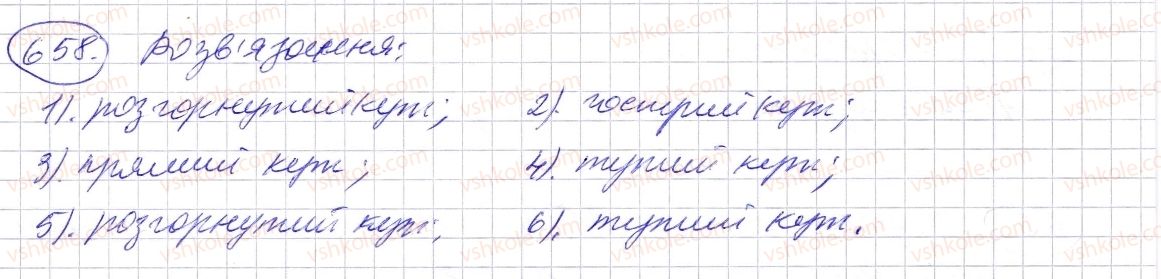 658. Розв'язання:
1). розгорнутий кут; 2). гострий кут;
3). прямий кут; 4). тупий кут;
5). розгорнутий кут; 6). тупий кут.